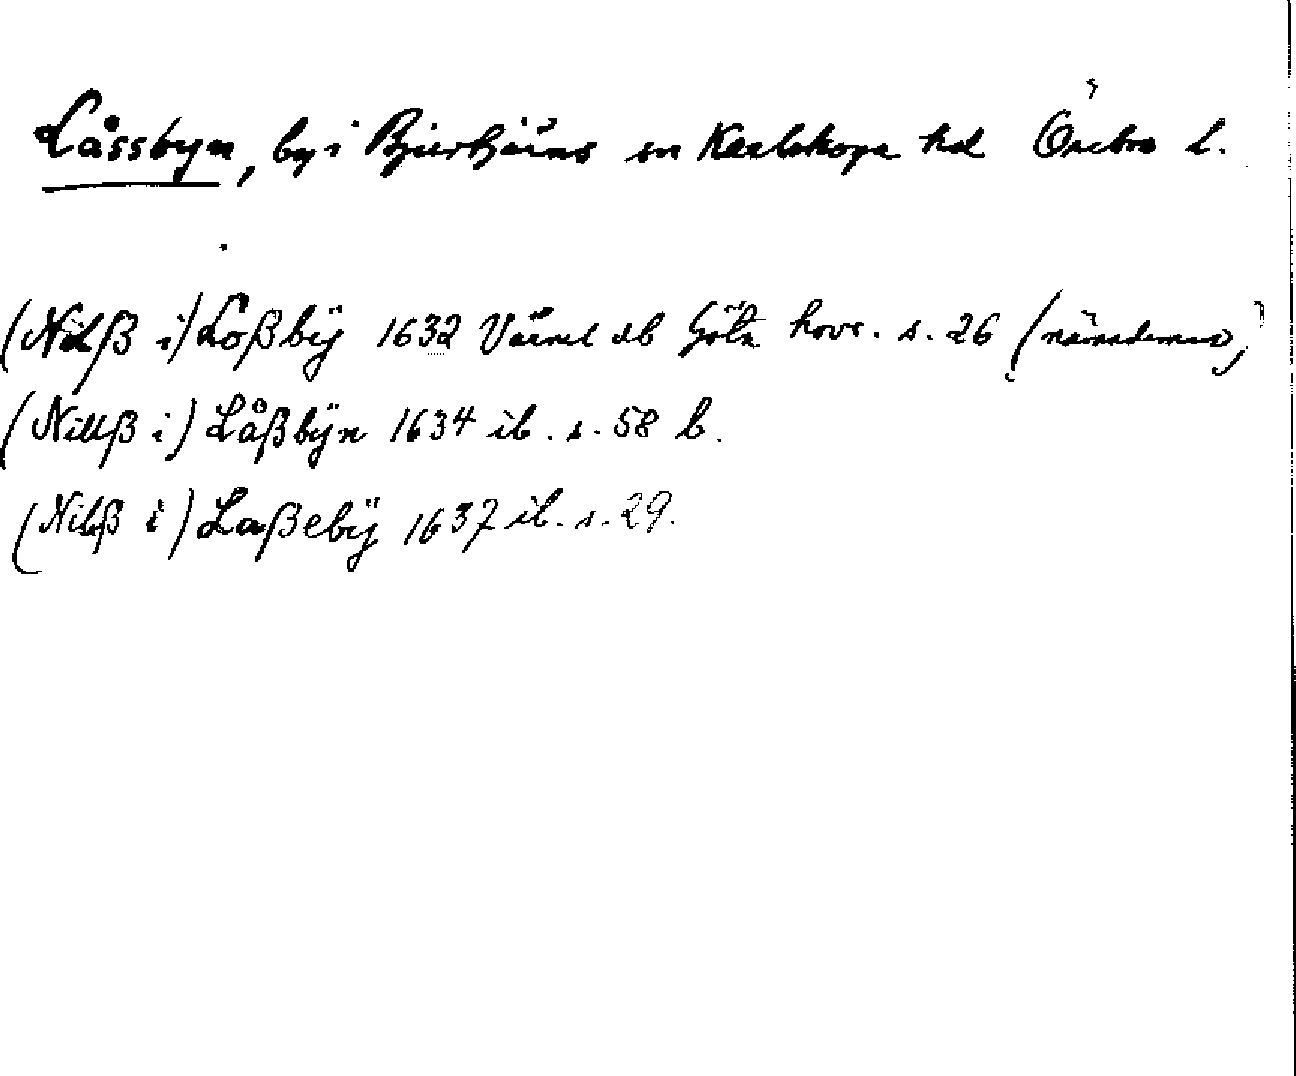 Låssbyn, by i Bjurtjärns sn Karlskoga hd Örebro l.
(Nilß i) Loßbÿ 1632 Värml db Göta hovr. s. 26 (nämndeman)
(Nillß i) Låßbÿn 1634 ib. s. 58 b.
(Nilß i) Laßebÿ 1637 ib. s. 29.